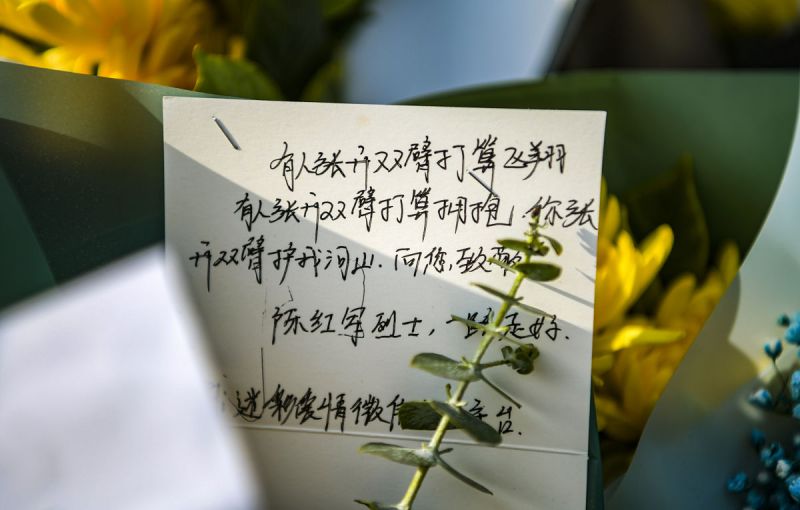 有人张开双臂打算飞翔
有人张开双臂打算拥抱，你张
开双臂护我河山.向您致敬
陈红军烈士，一路走好.
迷彩爱情微信 台.